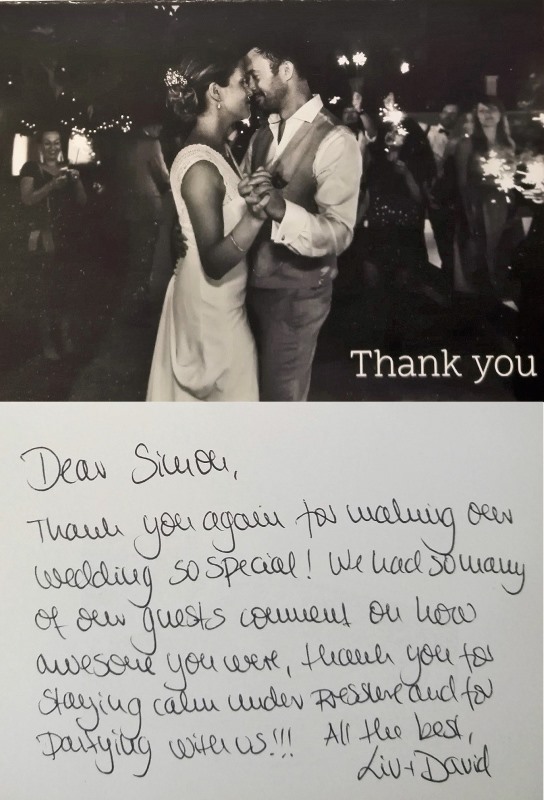 Thank you
Dear Simon,
Thank you again for making our
wedding so special! We had so many
of our guests comment on how
awesome you were, thank you for
staying calm under pressure and for
partying with us!!! All the best,
Liv + David